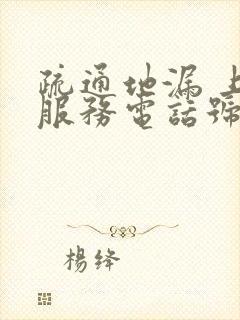 疏通地漏上
服務電話號
楊绛